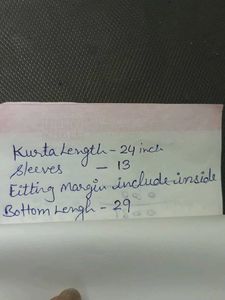 Kurta Length - 24 inch
Sleeves - 13
Fitting Margin include inside
Bottom Lengh - 29